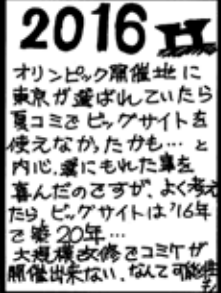 2016
オリンピック開催地に
東京が選ばれていたら
夏コミでビッグサイトを
使えなかったかも…と
内心、選にもれた事を
喜んだのですが、よく考え
たら、ビッグサイトは'16年
で築20年…
大規模改修でコミケが
開催出来ない、なんて可能性も